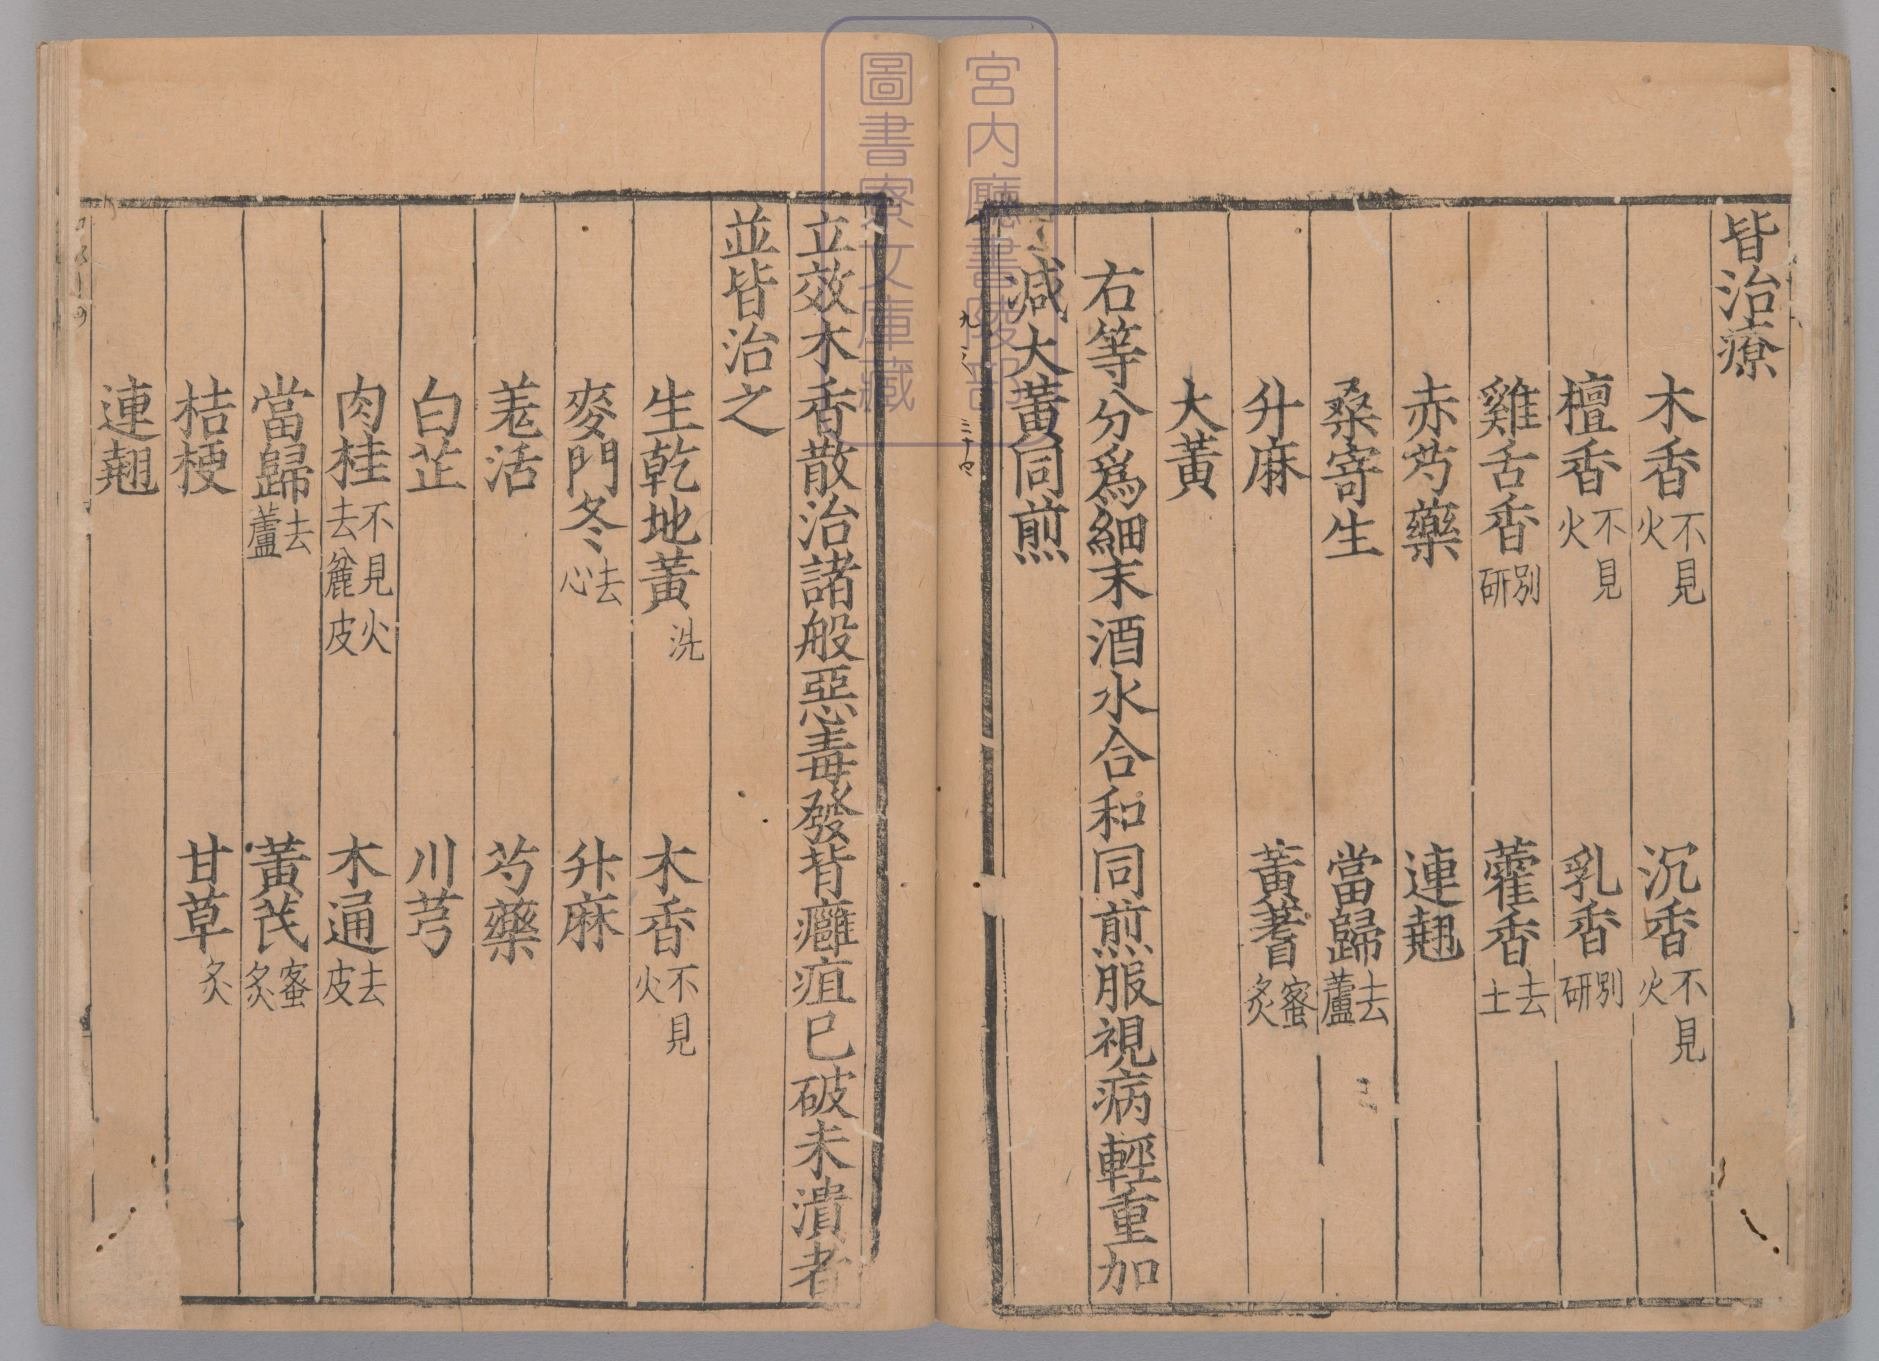 皆治療
木香不見火　沉香不見火
檀香不見火　乳香別研
雞舌香別研　藿香去土
赤芍藥　連翹
桑寄生　當歸去蘆
升麻　黃蓍蜜炙
大黃
右等分爲細末酒水合和同煎服視病輕重加
減大黃同煎
立效木香散治諸般惡毒發背癰疽已破未潰者
並皆治之
生乾地黃洗　木香不見火
麥門冬去心　升麻
羌活　芍藥
白芷　川芎
肉桂不見火去麄皮　木通去皮
當歸去蘆　黃茋蜜炙
桔梗　甘草炙
連翹
宮内廳書陵部
圖書寮文庫藏